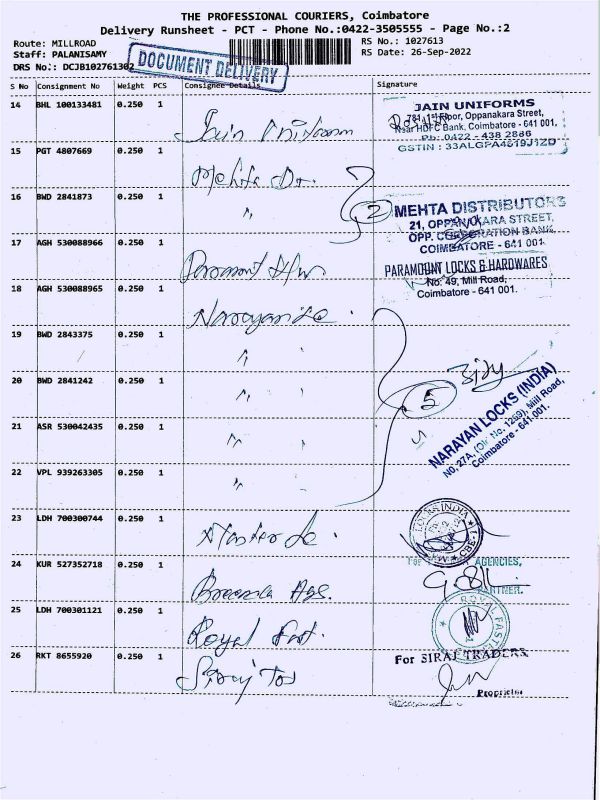 THE PROFESSIONAL COURIERS, Coimbatore
Delivery Runsheet - PCT - Phone No.:0422-3505555 - Page No.:2
Route: MILLROAD
RS No.: 1027613
Staff: PALANISAMY
RS Date: 26-Sep-2022
DRS No.: DCJB102761302
DOCUMENT DELIVERY
S No Consignment No Weight PCS Consignee Details Signature
14 BHL 100133481 0.250 1 Jain Uniform
JAIN UNIFORMS
781, 1st Floor, Oppanakara Street,
Near HDFC Bank, Coimbatore - 641 001.
Ph: 0422 - 438 2886
GSTIN : 33ALGPA4619J1ZD
15 PGT 4807669 0.250 1 Mehta Dr.
16 BWD 2841873 0.250 1 "
2
MEHTA DISTRIBUTORS
21, OPPANAKARA STREET,
OPP. CORPORATION BANK,
COIMBATORE - 641 001.
17 AGH 530088966 0.250 1 Paramount H/w
PARAMOUNT LOCKS & HARDWARES
No: 49, Mill Road,
Coimbatore - 641 001.
18 AGH 530088965 0.250 1 Narayan Lo.
19 BWD 2843375 0.250 1 "
20 BWD 2841242 0.250 1 "
5
21 ASR 530042435 0.250 1 "
NARAYAN LOCKS (INDIA)
No, 27A, (Old No. 1269), Mill Road,
Coimbatore - 641 001.
22 VPL 939263305 0.250 1 "
23 LDH 700300744 0.250 1 Master Lo.
LOCKS INDIA
CBE-1
24 KUR 527352718 0.250 1 Ags.
AGENCIES,
PARTNER.
25 LDH 700301121 0.250 1 Royal Fast.
ROYAL FAST
26 RKT 8655920 0.250 1 Siraj Trs
For SIRAJ TRADERS
Proprietor